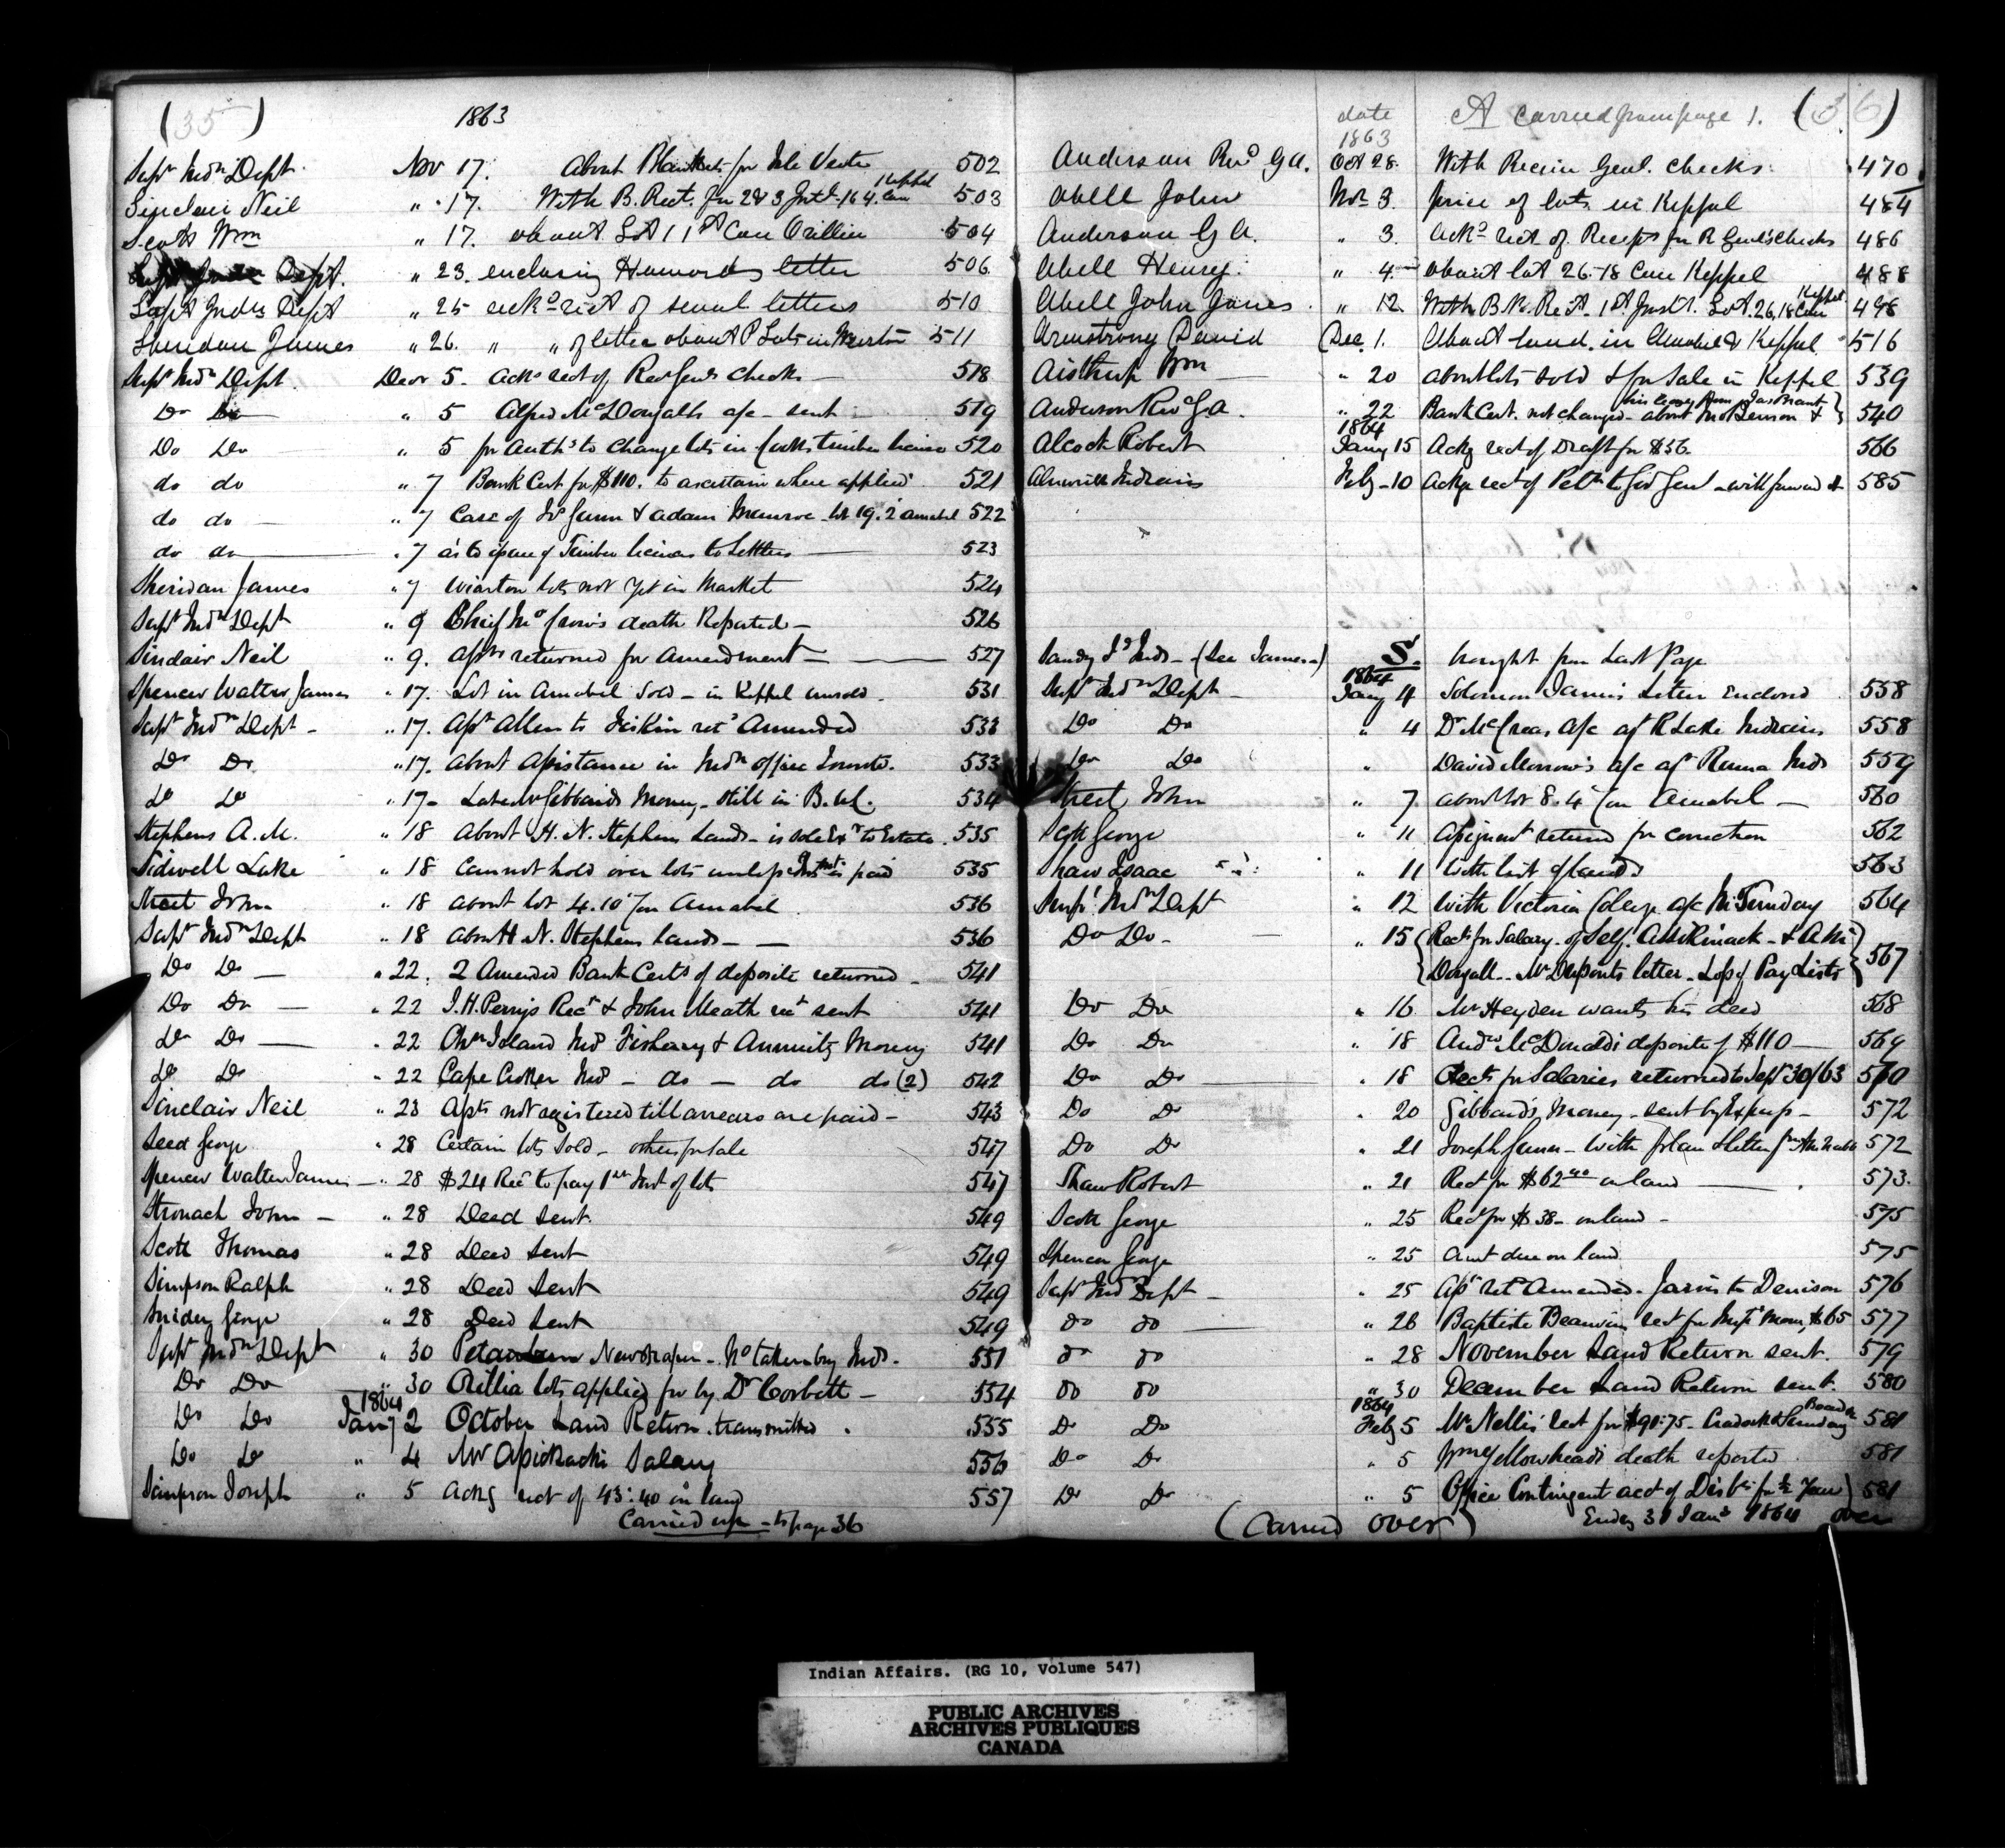 (35)
1863
Supt Indn Dept Nov 17. About Blankets for 502
Sinclair Neil " 17. With B. Rect. for 2 & 3 Inst - 16 4. Con Keppel 503
Scott Wm " 17. about Lot 11 1st Con Orillia 504
Dept. " 23. enclosing Howards letter 506
Supt Indn Dept " 25 ackg rect of several letters 510
Sheridan James " 26. " " of letter about P Lots in Wiarton 511
Supt Indn Dept. Decr 5. Ackg rect of Rec Genls checks 518
Do Do " 5 Alfred McDougalls a/c - sent 519
Do Do " 5 for Auth to change lots in timber license 520
do do " 7 Bank Cert for $110. to ascertain where applied 521
do do " 7 Case of Jos Gunn & Adam Munroe - lot 19. 2 Amabel 522
do do " 7 as to issue of Timber licenses to Settlers 523
Sheridan James " 7 Wiarton lots not yet in Market 524
Supt Indn Dept " 9 Chief death Reported - 526
Sinclair Neil " 9. Assts returned for Amendment - 527
Spencer Walter James " 17. Lot in Amabel Sold - in Keppel unsold. 531
Supt Indn Dept - " 17. Asst Allen to ret Amended 533
Do Do " 17. About Assistance in Indn office Toronto. 533
Do Do " 17 - Late Mr Gibbards Money - still in B. U.C. 534
Stephens A. M. " 18 About H. N. Stephens Lands - is to Estate. 535
Sidwell Luke " 18 Cannot hold over lots unless Inst is paid 535
Street John " 18 about lot 4. 10 Con Amabel 536
Supt Indn Dept " 18 About H N. Stephens Lands - 536
Do Do " 22. 2 Amended Bank Certs of deposite returned - 541
Do Do " 22 J. H. Perrys Rect & John Meath rect sent 541
Do Do " 22 Chrn Island Inds Fishery & Annuity Money 541
Do Do " 22 Cape Croker Inds - do - do do (2) 542
Sinclair Neil " 23 Assts not registered till arrears are paid - 543
Seed George " 28 Certain lots Sold - others for Sale 547
Spencer Walter James " 28 $24 Recd to pay 1st Inst of lots 547
Stronach John - " 28 Deed Sent. 549
Scott Thomas " 28 Deed Sent 549
Simpson Ralph " 28 Deed Sent 549
Snider George " 28 Deed Sent 549
Supt Indn Dept " 30 Newspaper - No taken by Inds - 551
Do Do " 30 Orillia lots applied for by Dr Corbett - 554
1864
Do Do Jany 2 October Land Return transmitted. 555
Do Do " 4 Mr Assickacks Salary 556
Sampson Joseph " 5 Ackg rect of 43.40 on land 557
Carried up - to page 36
date A carried from page 1. (36)
1863
Anderson Revd G A. Oct 28. With Receiv Genl. Checks. 470
Abell John Nov. 3. price of lots in Keppel 484
Anderson G A. " 3. Ackg rect of Receipts for R Genls Checks 486
Abell Henry. " 4. about lot 26. 18 Con Keppel 488
Abell John Jones " 12. With B. Re. Rect. 1st Inst. Lot 26, 18 Con Keppel 498
Armstrong David Dec. 1. About land in Amabel & Keppel 516
Aisthrop Wm " 20 about lots sold & for Sale in Keppel 539
Anderson Revd G A. " 22 Bank Cert. not changed - about 540
1864
Alcock Robert Jany 15 Ackg rect of Draft for $56. 566
Alnwick Indians Feby - 10 Ackge rect of Petn to Gov Genl - will forward it 585
S. brought from Last Page
Sandy Id Inds - (See James -)
1864
Supt Indn Dept - Jany 4 Solomon James letter Enclosed 558
Do Do " 4 Dr McCreas a/c agt R Lake Indians 558
Do Do " David Morrow's a/c agt Rama Inds 559
Street John " 7 about lot 8. 4 Con Amabel - 560
Scott George " 11 Assignment returned for correction 562
Shaw Isaac " 11 with list of lands 563
Supt Indn Dept " 12 With Victoria College a/c 564
Do Do - " 15 Rects for Salary - of Self. Assikinack - & A. Mc-
Dougall - Mr Duponts letter - of Pay Lists 567
Do Do " 16 Mr Heyden wants his deed 568
Do Do " 18 Andw McDonalds deposite of $110 - 569
Do Do " 18 Rects for Salaries returned to Sept 30/63 570
Do Do " 20 Gibbards Money - sent by Express - 572
Do Do " 21 Joseph Gunn - with plan & letter fm 572
Shaw Robert " 21 Rect for $62.40 on land 573.
Scott George " 25 Rect for $38 - on land - 575
Spencer George " 25 Amt due on land 575
Supt Indn Dept - " 25 Asst ret Amended - Jarvis to Denison 576
do do " 26 Baptiste Beauvais rect for $65 577
do do " 28 November Land Return sent. 579
do do " 30 December Land Return sent. 580
1864
Do Do Feby 5 Mr Nellis' rect for $91.75 - Board 581
Do Do " 5 Wm Yellowheads death reported 581
Do Do " 5 Office Contingent acct of Disbts for ½ Year 581
(Carried over) Ending 31 Jany 1864 over
Indian Affairs. (RG 10, Volume 547)
PUBLIC ARCHIVES
ARCHIVES PUBLIQUES
CANADA